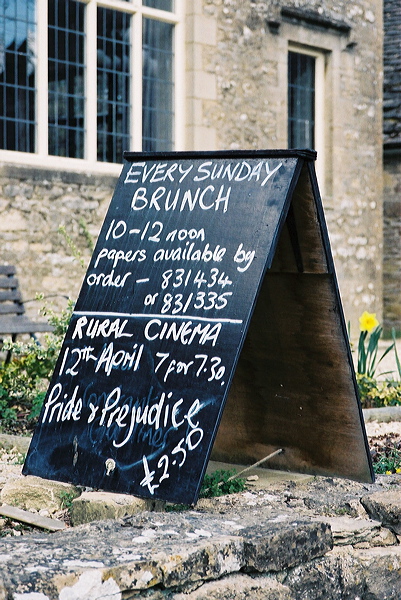 EVERY SUNDAY
BRUNCH
10-12 noon
papers available by
order - 831434
or 831335
RURAL CINEMA
12th April 7 for 7.30.
Pride & Prejudice
£2.50